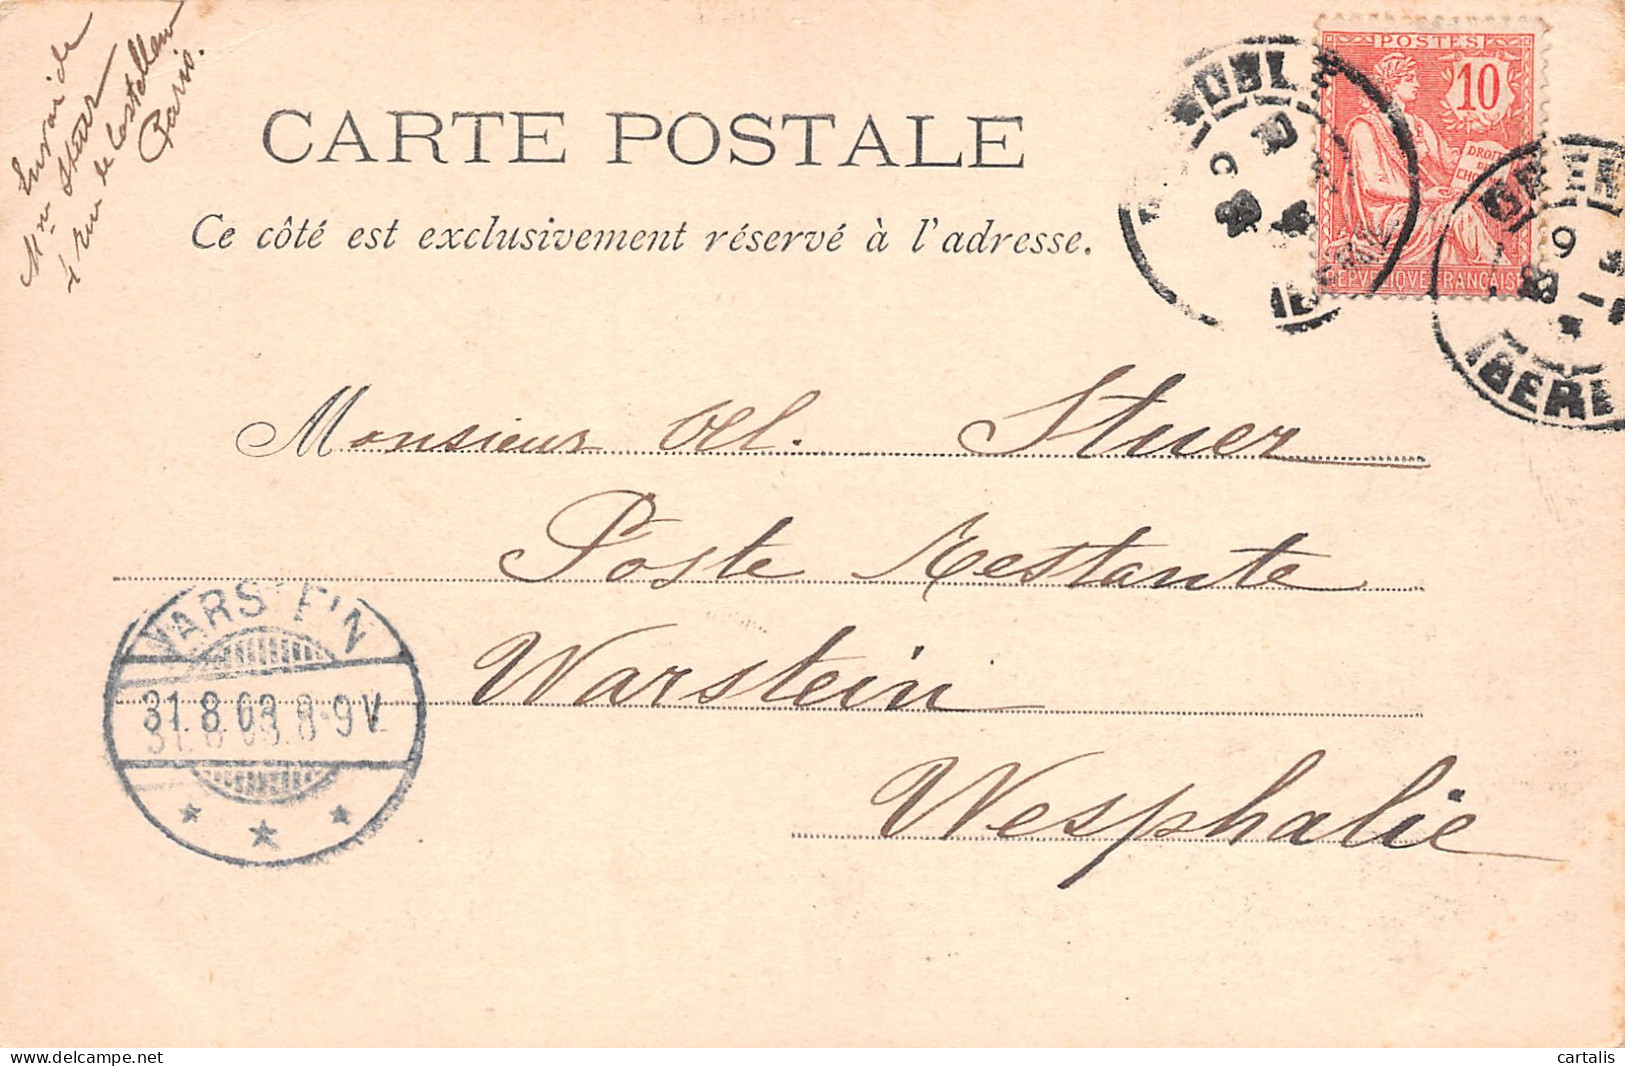 Envoi de
Mme Stuer
4 rue de Castellane
Paris.
CARTE POSTALE
Ce côté est exclusivement réservé à l'adresse.
POSTES
10
DROITS
DE
L'HOMME
REPVBLIQVE FRANÇAISE
ISERE
9
ISERE
Monsieur Stuer
Poste Restante
Warstein
Westphalie
WARSTEIN
31.8.03.8-9V.
cartalis